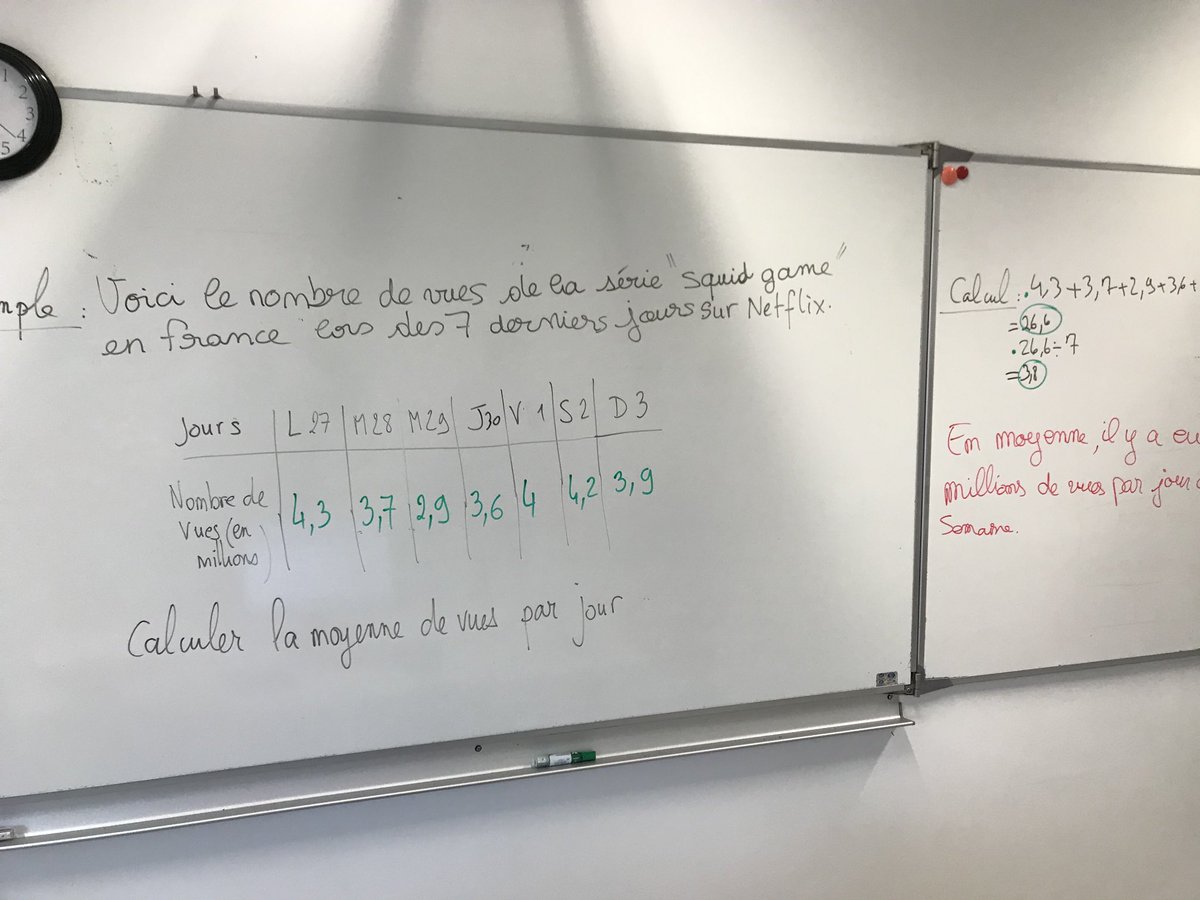 mple : Voici le nombre de vues de la série "squid game"
en france lors des 7 derniers jours sur Netflix.
Jours L 27 M 28 M 29 J 30 V 1 S 2 D 3
Nombre de
vues (en
millions) 4,3 3,7 2,9 3,6 4 4,2 3,9
Calculer la moyenne de vues par jour
Calcul : . 4,3+3,7+2,9+3,6+
= 26,6
. 26,6÷7
= 3,8
En moyenne, il y a eu
millions de vues par jour
semaine.
1
2
3
4
5